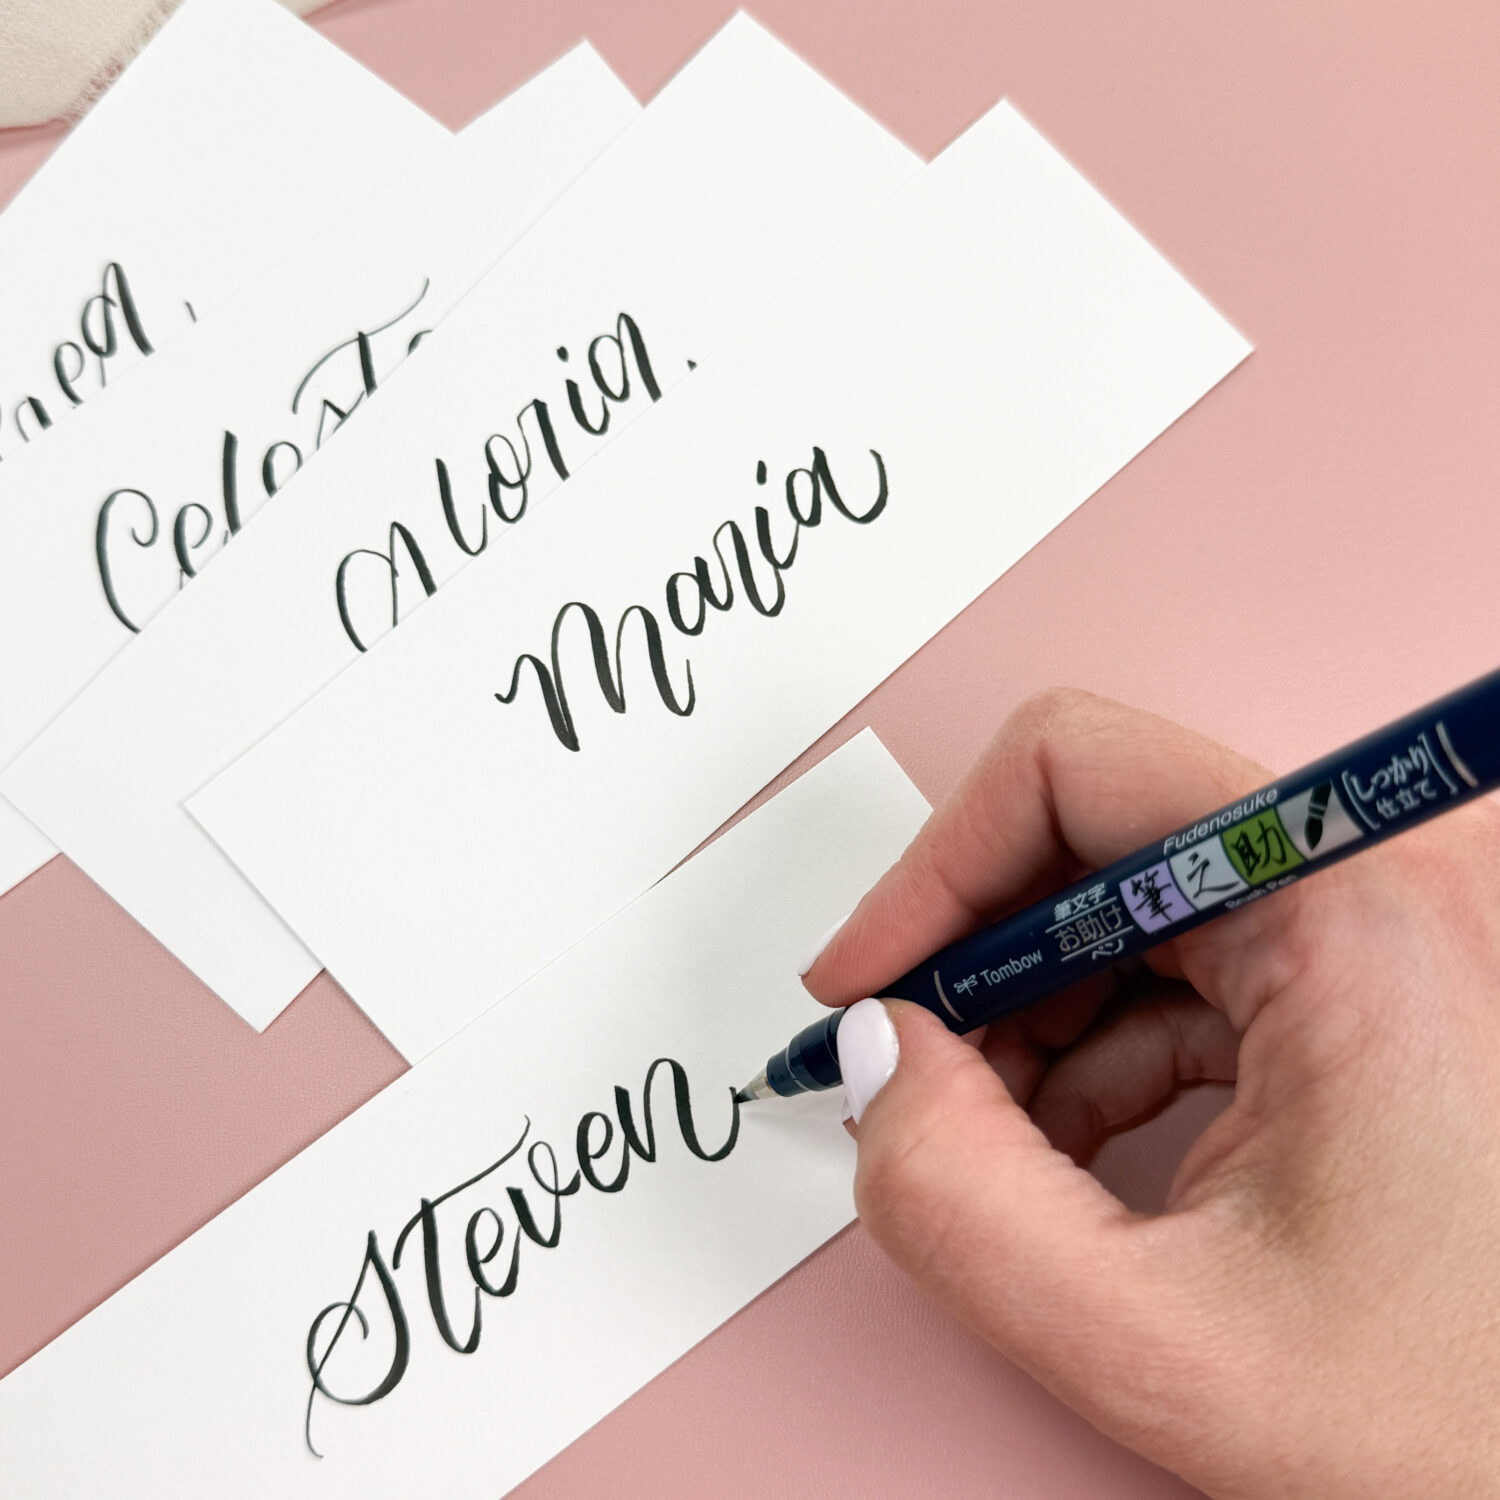 Celeste
Gloria
Maria
Steven
Tombow
筆文字
お助け
ペン
Fudenosuke
筆之助
Brush Pen
しっかり
仕立て